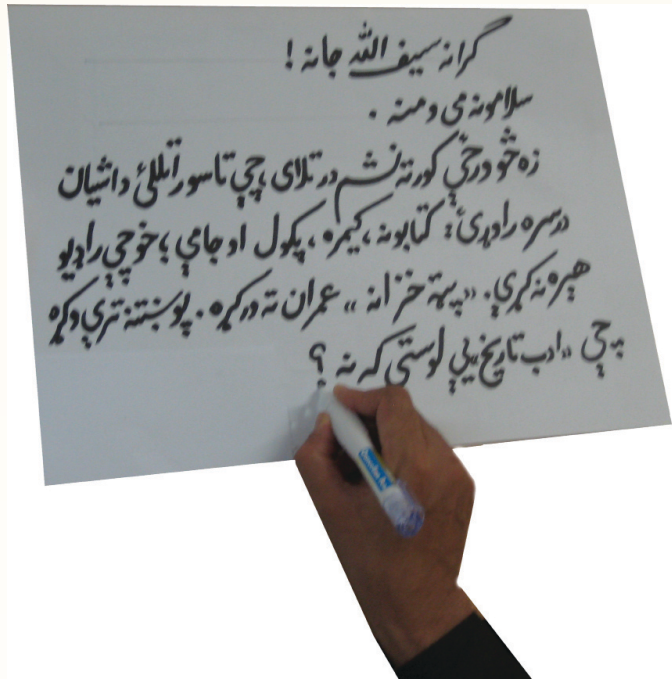 ګرانه سیف الله جانه !
سلامونه مې ومنه .
زه څو ورځې کورته نشم درتلای ، چې تاسو راتللئ دا شیان
درسره راوړئ: کتابونه ، کیمره ، پکول او جامې ؛ خو چې راډیو
هېره نه کړې. «پټه خزانه» عمران ته ورکړه . پوښتنه ترې وکړه
چې «ادب تاریخ» یې لوستی که نه ؟